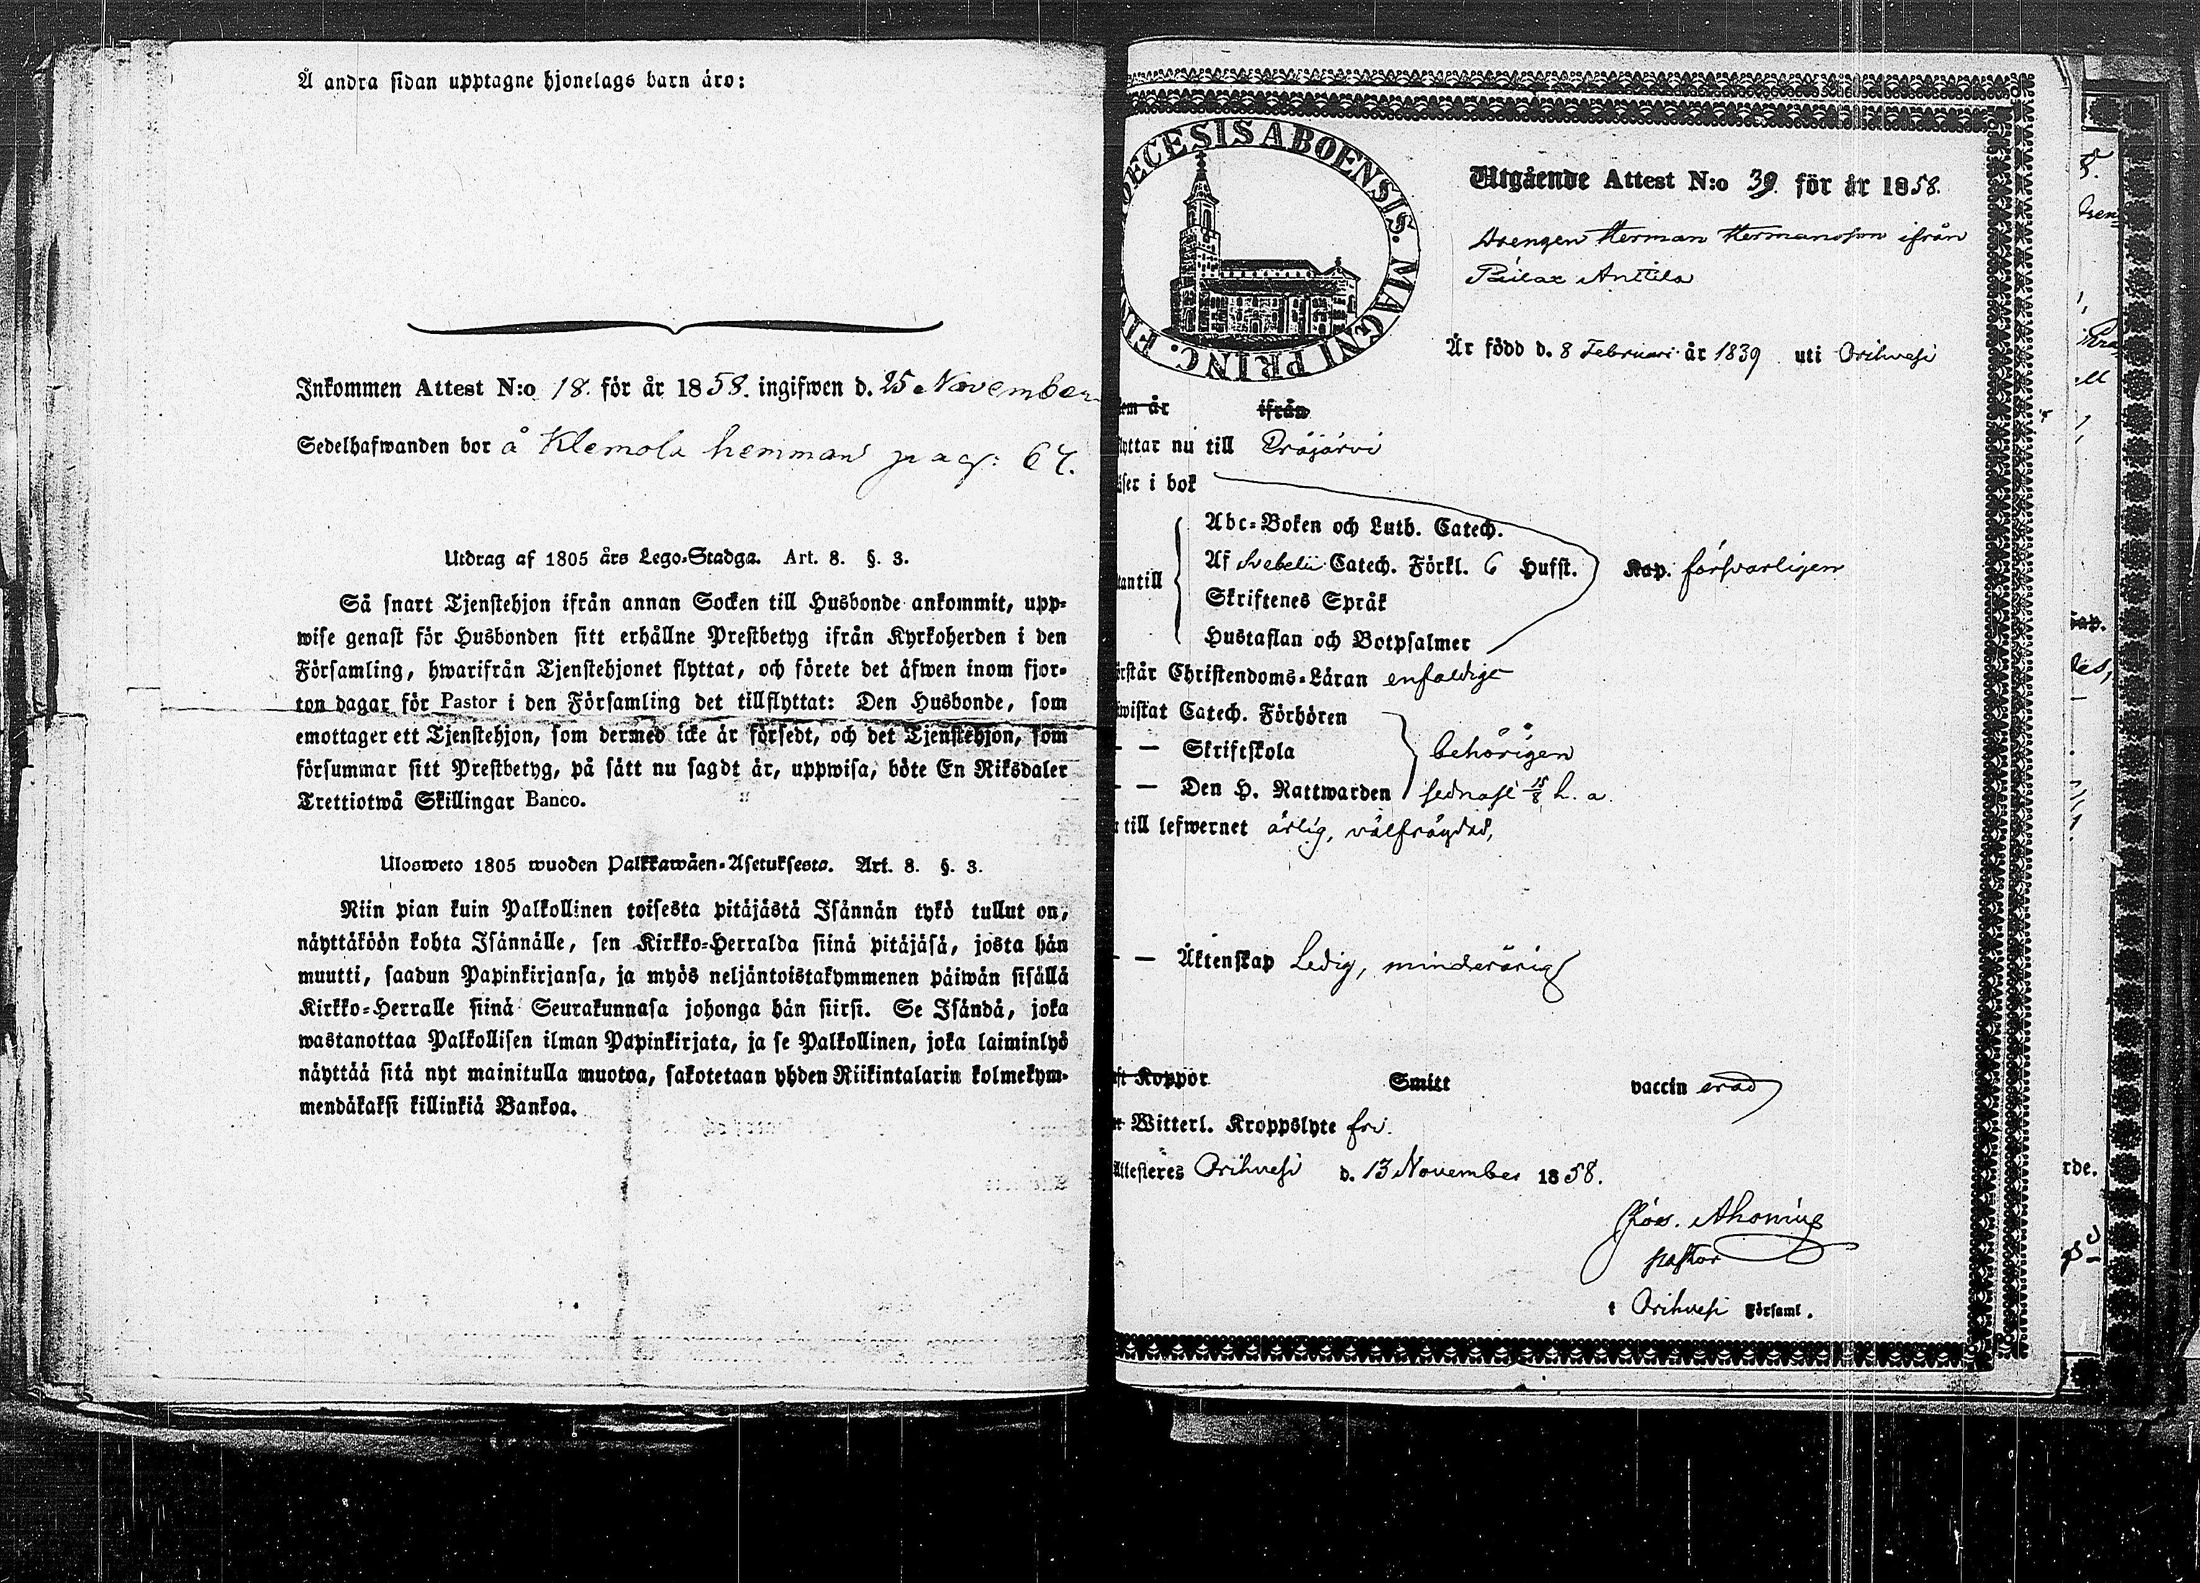 Å andra sidan upptagne hjonelags barn äro:
Inkommen Attest N:o 18. för år 1858. ingifwen d. 25 November
Sedelhafwanden bor å Klemola hemman pag: 67.
Utdrag af 1805 års Lego-Stadga. Art. 8. §. 3.
Så snart Tjenstehjon ifrån annan Socken till Husbonde ankommit, upp-
wise genast för Husbonden sitt erhållne Prestbetyg ifrån Kyrkoherden i den
Församling, hwarifrån Tjenstehjonet flyttat, och förete det äfwen inom fjor-
ton dagar för Pastor i den Församling det tillflyttat: Den Husbonde, som
emottager ett Tjenstehjon, som dermed icke är försedt, och det Tjenstehjon, som
försummar sitt Prestbetyg, på sätt nu sagdt är, uppwisa, böte En Riksdaler
Trettiotwå Skillingar Banco.
Ulosweto 1805 wuoden Palkkawäen-Asetuksesta. Art. 8. §. 3.
Niin pian kuin Palkollinen toisesta pitäjästä Isännän tykö tullut on,
näyttäköön kohta Isännälle, sen Kirkko-Herralda siinä pitäjäsä, josta hän
muutti, saadun Papinkirjansa, ja myös neljäntoistakymmenen päiwän sisällä
Kirkko-Herralle siinä Seurakunnasa johonga hän siirsi. Se Isändä, joka
wastanottaa Palkollisen ilman Papinkirjata, ja se Palkollinen, joka laiminlyö
näyttää sitä nyt mainitulla muotoa, sakotetaan yhden Riikintalarin kolmekym-
mendäkaksi killinkiä Bankoa.
OECESIS ABOENSIS. MAGNI PRINC. FIN
Utgående Attest N:o 39. för år 1858.
Drengen Herman Hermansson ifrån
Päilax Anttila
Är född d. 8 Februari år 1839 uti Orihvesi
em år ifrån
lyttar nu till Präjärvi
äser i bok
Abc-Boken och Luth. Catech.
Af Svebelii Catech. Förkl. 6 Hufst. Kap. försvarligen
tantill
Skriftenes Språk
Hustaflan och Botpsalmer
örstår Christendoms-Läran enfaldigt
wistat Catech. Förhören
— — Skriftskola behörigen
— — Den H. Nattwarden sednast 15/8 h. a.
r till lefwernet ärlig, välfrägdad,
— — Äktenskap Ledig, minderårig
ft Koppor Smitt vaccin erad
r Witterl. Kroppslyte fri.
Attesteres Orihvesi d. 13 November 1858.
Joos. Ahonius
pastor
i Orihvesi Församl.